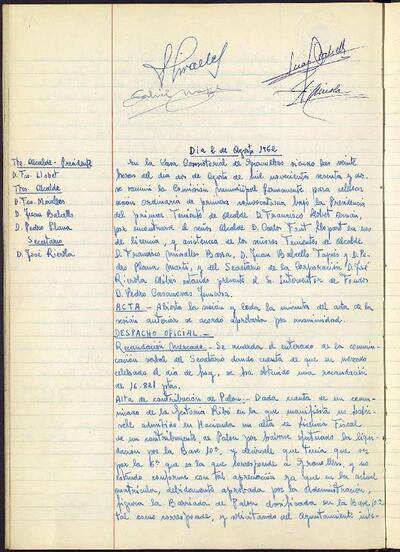 Dia 2 de Agosto 1962
Tte. Alcalde - Presidente
D. Fco. Llobet
Ttes. Alcalde
D. Fco. Miralles
D. Juan
D. Pedro Plana
Secretario
D. José Ricolta
En la Casa Consistorial de Granollers siendo las veinte
horas del dia dos de Agosto de mil novecientos sesenta y dos,
se reunió la Comisión Municipal Permanente para celebrar
sesión ordinaria de primera convocatoria bajo la Presidencia
del primer Teniente de Alcalde D. Francisco Llobet
por encontrarse el señor Alcalde D. Carlos Font Llopart en uso
de licencia, y asistencia de los señores Tenientes de Alcalde
D. Francisco Miralles Bassa, D. Juan y D. Pe-
dro Plana y del Secretario de la Corporación, D. José
estando presente el Sr. Interventor de Fondos
D. Pedro Casanovas
ACTA - Abierta la sesión y leida la minuta del acta de la
sesión anterior se acordó aprobarla por unanimidad.
DESPACHO OFICIAL -
Recaudación Mercado - Se acuerda el enterado de la comuni-
cación verbal del Secretario dando cuenta de que en mercado
celebrado el dia de hoy, se ha obtenido una recaudación
de 16.821 ptas.
Alta de contribución de Palou - Dada cuenta de un comu-
nicado de la Gestoría Ribó en la que manifiesta no habér-
sele admitido en Hacienda un alta de Licencia Fiscal
de un contribuyente de Palou por haberse efectuado la liqui-
dación por la Base 10ª, y decirsele que tenía que ser
por la 6ª que es la que corresponde a Granollers, y no
estando conforme con tal apreciación ya que en la actual
matrícula, debidamente aprobada por la Administración,
figura la Barriada de Palou clasificada en la Base 10ª
tal como corresponde, y solicitando del Ayuntamiento